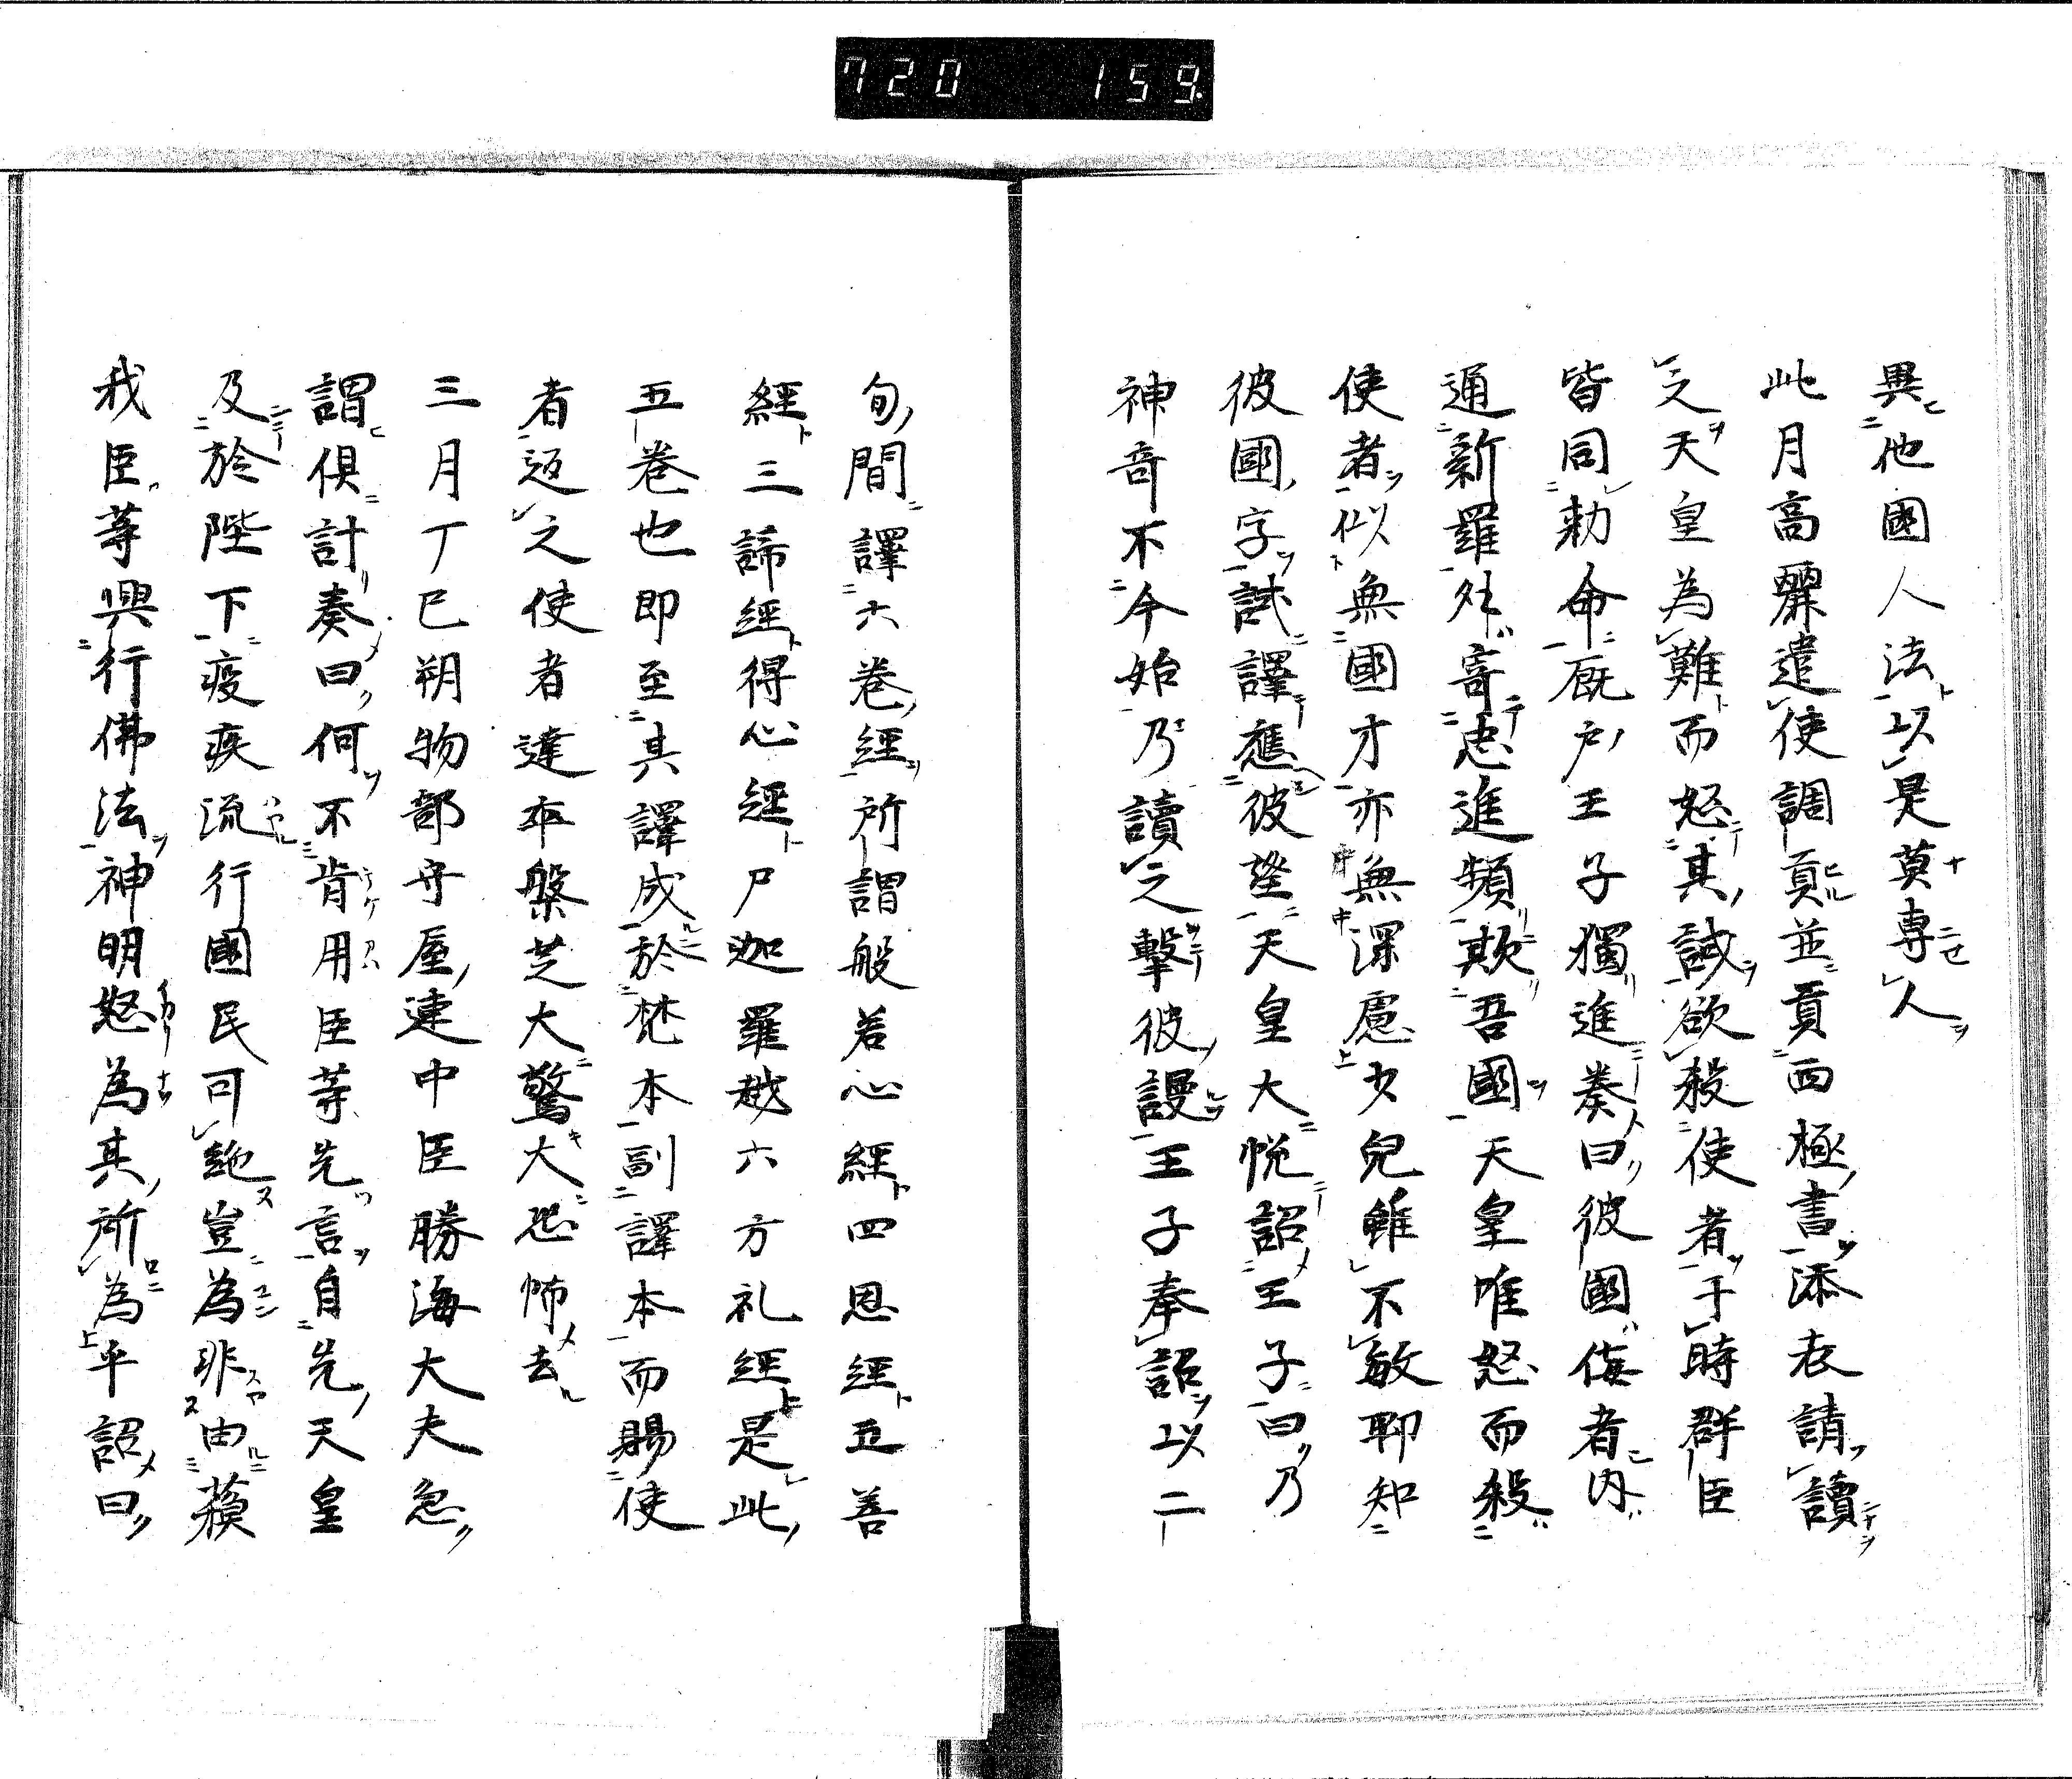 720 159.
異他國人法以是莫専人
此月高麗遣使調貢並貢西極書添表請讀
之天皇為難而怒其誠欲殺使者于時群臣
皆同勅命厩戸王子獨進奏曰彼國侮者内
通新羅外寄忠進頻欺吾國天皇唯怒而殺
使者似無國才亦無深慮少兒雖不敏耶知
彼國字試譯應彼望天皇大悦詔王子曰乃
神竒不今始乃讀之撃彼謾王子奉詔以二
旬間譯六巻經所謂般若心經四恩經五善
經三諦經得心經尸迦羅越六方礼經是此
五巻也即至其譯成於梵本副譯本而賜使
者返之使者達卒槃芝大驚大恐怖去
三月丁巳朔物部守屋連中臣勝海大夫急
謂倶計奏曰何不肯用臣等先言自先天皇
及於陛下疫疾流行國民可絶豈為非由蘓
我臣等興行佛法神明怒為其所為乎詔曰